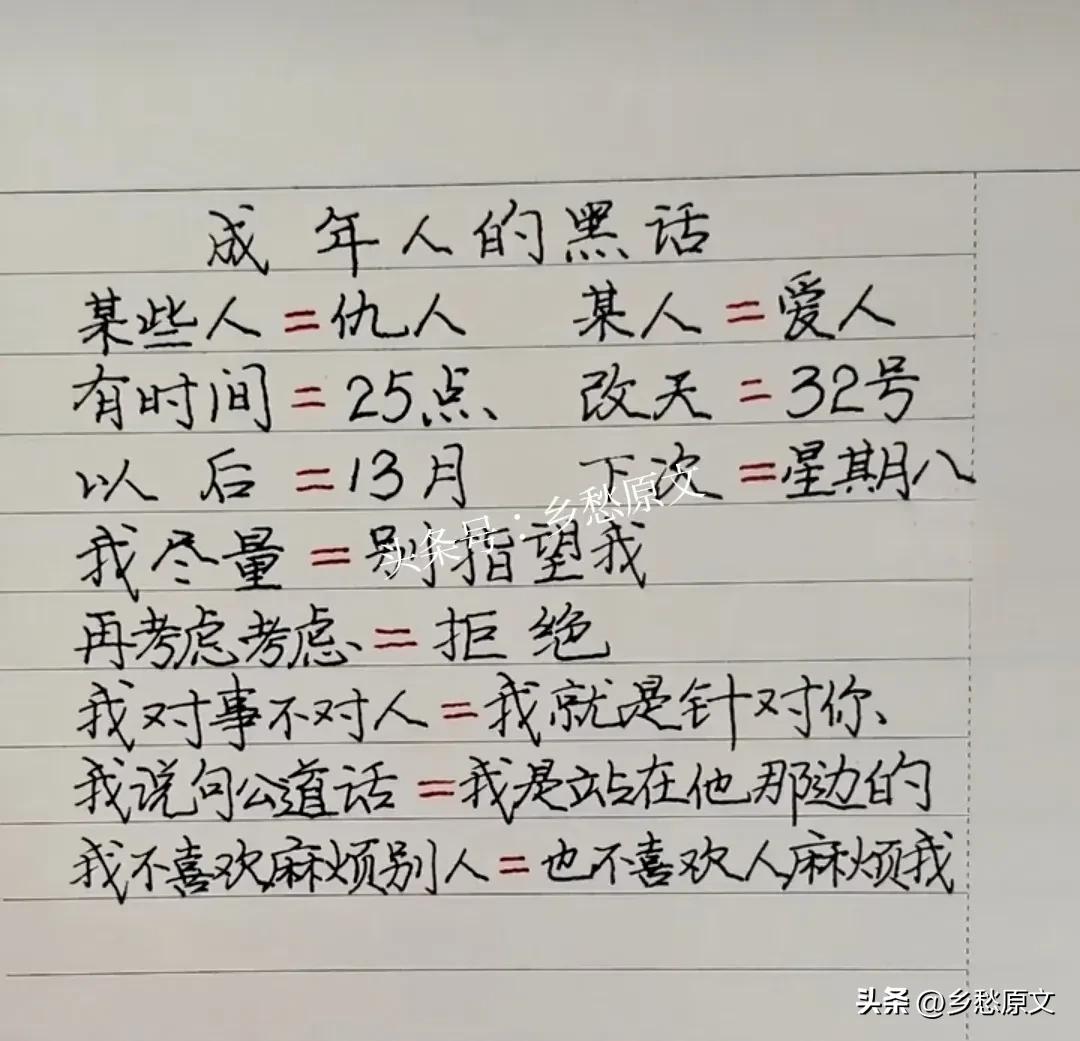 成年人的黑话
某些人=仇人 某人=爱人
有时间=25点、 改天=32号
以后=13月 下次=星期八
头条号：乡愁原文
我尽量=别指望我
再考虑考虑、=拒绝
我对事不对人=我就是针对你、
我说句公道话=我是站在他那边的
我不喜欢麻烦别人=也不喜欢人麻烦我
头条 @乡愁原文